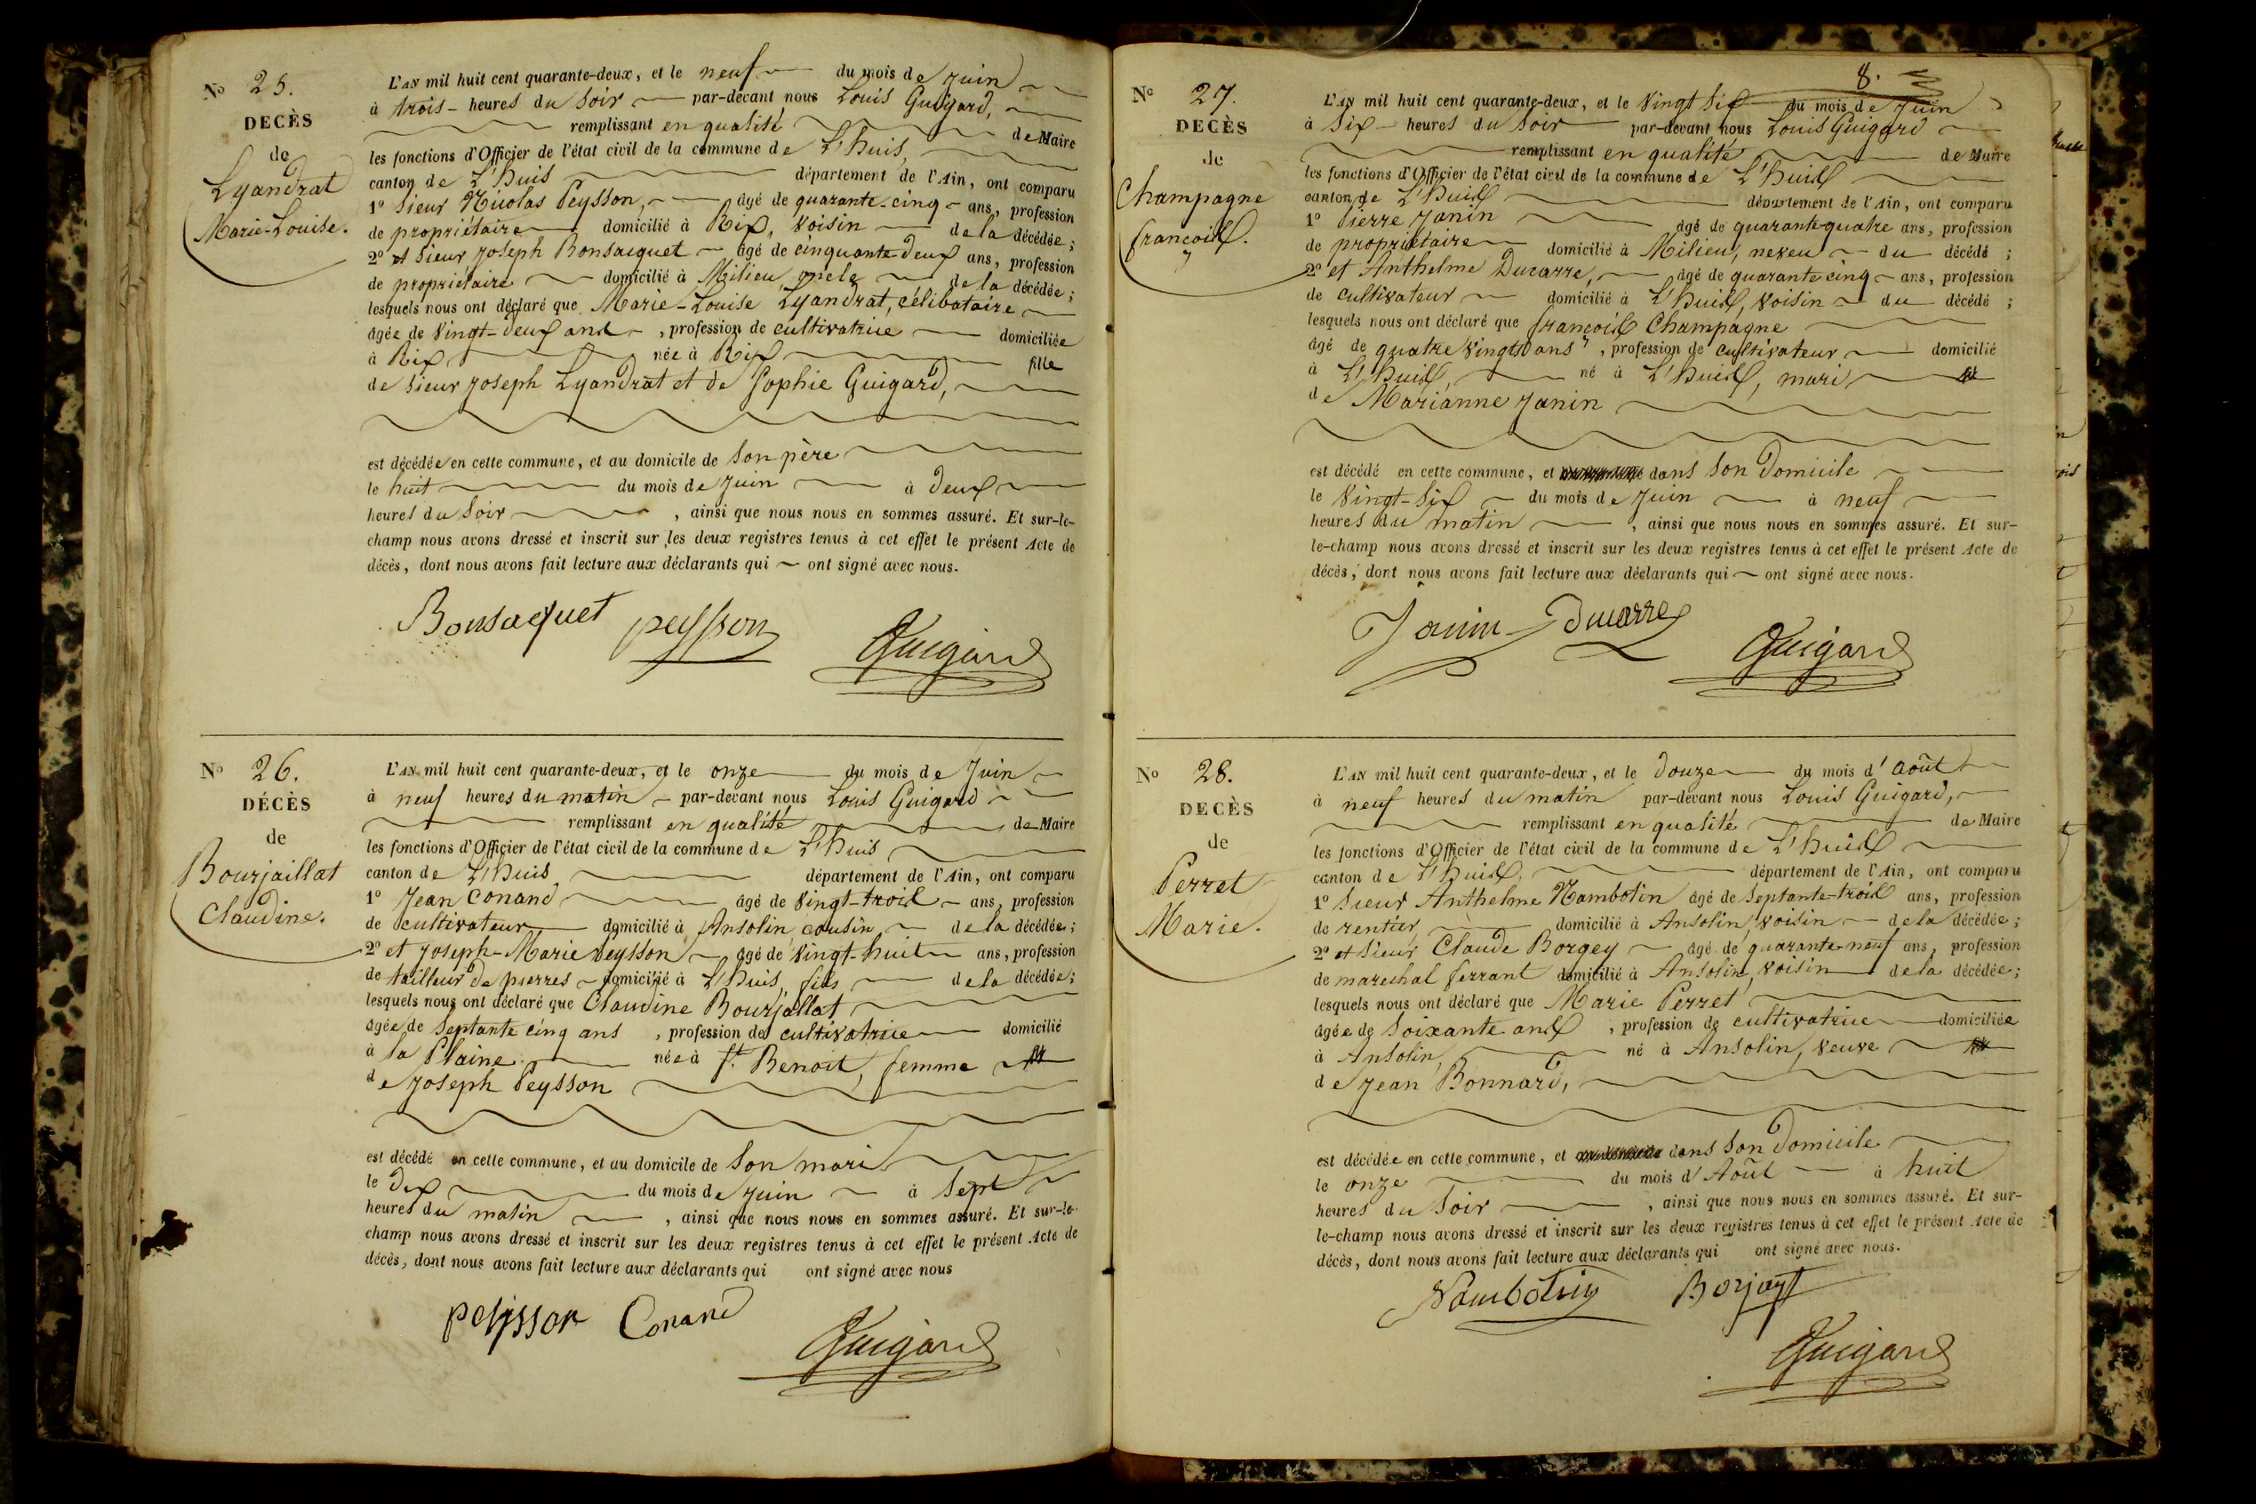 N° 25.
DECÈS
de
Lyandrat
Marie-Louise.
L'AN mil huit cent quarante-deux, et le neuf du mois de Juin
à trois heures du Soir par-devant nous Louis Guigard,
remplissant en qualité de Maire
les fonctions d'Officier de l'état civil de la commune de L'huis,
canton de L'huis département de l'Ain, ont comparu
1° Sieur Nicolas Peysson, âgé de quarante-cinq ans, profession
de propriétaire domicilié à Rix, Voisin de la décédée;
2° et Sieur Joseph Bonsacquet âgé de cinquante-deux ans, profession
de propriétaire domicilié à Milieu, oncle de la décédée;
lesquels nous ont déclaré que Marie-Louise Lyandrat, célibataire
âgée de Vingt-deux ans, profession de cultivatrice domiciliée
à Rix née à Rix fille
de Sieur Joseph Lyandrat et de Sophie Guigard,
est décédée en cette commune, et au domicile de Son père
le huit du mois de Juin à deux
heures du Soir, ainsi que nous nous en sommes assuré. Et sur-le-
champ nous avons dressé et inscrit sur les deux registres tenus à cet effet le présent Acte de
décès, dont nous avons fait lecture aux déclarants qui ont signé avec nous.
Bonsacquet peysson Guigard
N° 26.
DÉCÈS
de
Bourjaillat
Claudine.
L'AN mil huit cent quarante-deux, et le onze du mois de Juin
à neuf heures du matin par-devant nous Louis Guigard
remplissant en qualité de Maire
les fonctions d'Officier de l'état civil de la commune de L'huis
canton de L'huis département de l'Ain, ont comparu
1° Jean Conand âgé de Vingt-trois ans, profession
de cultivateur domicilié à Ansolin, cousin de la décédée;
2° et Joseph-Marie Peysson âgé de Vingt-huit ans, profession
de tailleur de pierres domicilié à L'huis, fils de la décédée;
lesquels nous ont déclaré que Claudine Bourjallat
âgée de Septante cinq ans, profession de cultivatrice domicilié
à la Plaine née à St. Benoit, femme
de Joseph Peysson
est décédé en cette commune, et au domicile de Son mari
le Dix du mois de Juin à Sept
heures du matin, ainsi que nous nous en sommes assuré. Et sur-le-
champ nous avons dressé et inscrit sur les deux registres tenus à cet effet le présent Acte de
décès, dont nous avons fait lecture aux déclarants qui ont signé avec nous
peysson Conand
Guigard
8.
N° 27.
DECÈS
de
Champagne
françois.
L'AN mil huit cent quarante-deux, et le Vingt Six du mois de Juin
à Six heures du Soir par-devant nous Louis Guigard
remplissant en qualité de Maire
les fonctions d'Officier de l'état civil de la commune de L'huis
canton de L'huis département de l'Ain, ont comparu
1° Pierre Janin âgé de quarante quatre ans, profession
de propriétaire domicilié à Milieu, neveu du décédé;
2° et Anthelme Ducarre, âgé de quarante cinq ans, profession
de cultivateur domicilié à L'huis, voisin du décédé;
lesquels nous ont déclaré que françois Champagne
âgé de quatre Vingts ans, profession de cultivateur domicilié
à L'huis, né à L'huis, mari
de Marianne Janin
est décédé en cette commune, et dans Son Domicile
le Vingt-Six du mois de Juin à neuf
heures du matin, ainsi que nous nous en sommes assuré. Et sur-
le-champ nous avons dressé et inscrit sur les deux registres tenus à cet effet le présent Acte de
décès, dont nous avons fait lecture aux déclarants qui ont signé avec nous.
Janin Ducarre Guigard
N° 28.
DÉCÈS
de
Perret
Marie.
L'AN mil huit cent quarante-deux, et le Douze du mois d'août
à neuf heures du matin par-devant nous Louis Guigard,
remplissant en qualité de Maire
les fonctions d'Officier de l'état civil de la commune de L'huis
canton de L'huis, département de l'Ain, ont comparu
1° Sieur Anthelme Nambotin âgé de Septante-trois ans, profession
de rentier domicilié à Ansolin, voisin de la décédée;
2° et Sieur Claude Borgey âgé de quarante-neuf ans, profession
de marechal ferrant domicilié à Ansolin, voisin de la décédée;
lesquels nous ont déclaré que Marie Perret
âgée de soixante ans, profession de cultivatrice domiciliée
à Ansolin, né à Ansolin, veuve
de Jean Bonnard,
est décédée en cette commune, et dans Son Domicile
le onze du mois d'Août à huit
heures du Soir, ainsi que nous nous en sommes assuré. Et sur-
le-champ nous avons dressé et inscrit sur les deux registres tenus à cet effet le présent Acte de
décès, dont nous avons fait lecture aux déclarants qui ont signé avec nous.
Nambotin Borjayt
Guigard